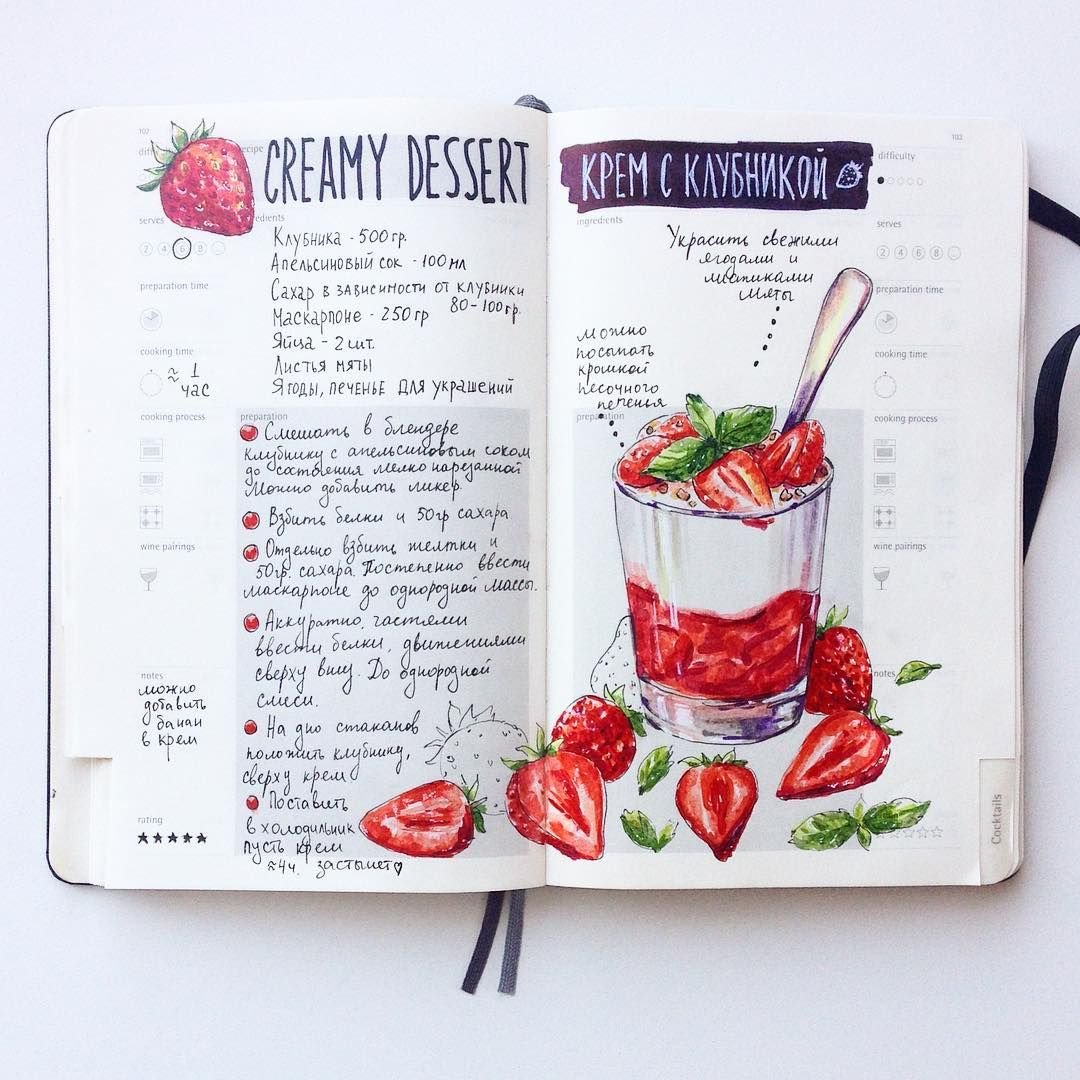 102
recipe
CREAMY DESSERT
serves
2 4 6 8 ...
preparation time
cooking time
≈ 1
час
cooking process
wine pairings
notes
можно
добавить
банан
в крем
rating
Клубника - 500гр.
Апельсиновый сок - 100мл
Сахар в зависимости от клубники
80-100гр.
Маскарпоне - 250гр
Яйца - 2шт.
Листья мяты
Ягоды, печенье для украшений
preparation
Смешать в блендере
клубнику с апельсиновым соком
до состояния мелко нарезанной
Можно добавить ликер.
Взбить белки и 50гр сахара
Отдельно взбить желтки и
50гр. сахара. Постепенно ввести
маскарпоне до однородной массы.
Аккуратно, частями
ввести белки, движениями
сверху вниз. До однородной
смеси.
На дно стаканов
положить клубнику,
сверху крем
Поставить
в холодильник
пусть крем
≈4ч. застынет
103
КРЕМ С КЛУБНИКОЙ
ingredients
Украсить свежими
ягодами и
листиками
мяты
можно
посыпать
крошкой
песочного
печенья
preparation
difficulty
serves
2 4 6 8 ...
preparation time
cooking time
cooking process
wine pairings
notes
Cocktails